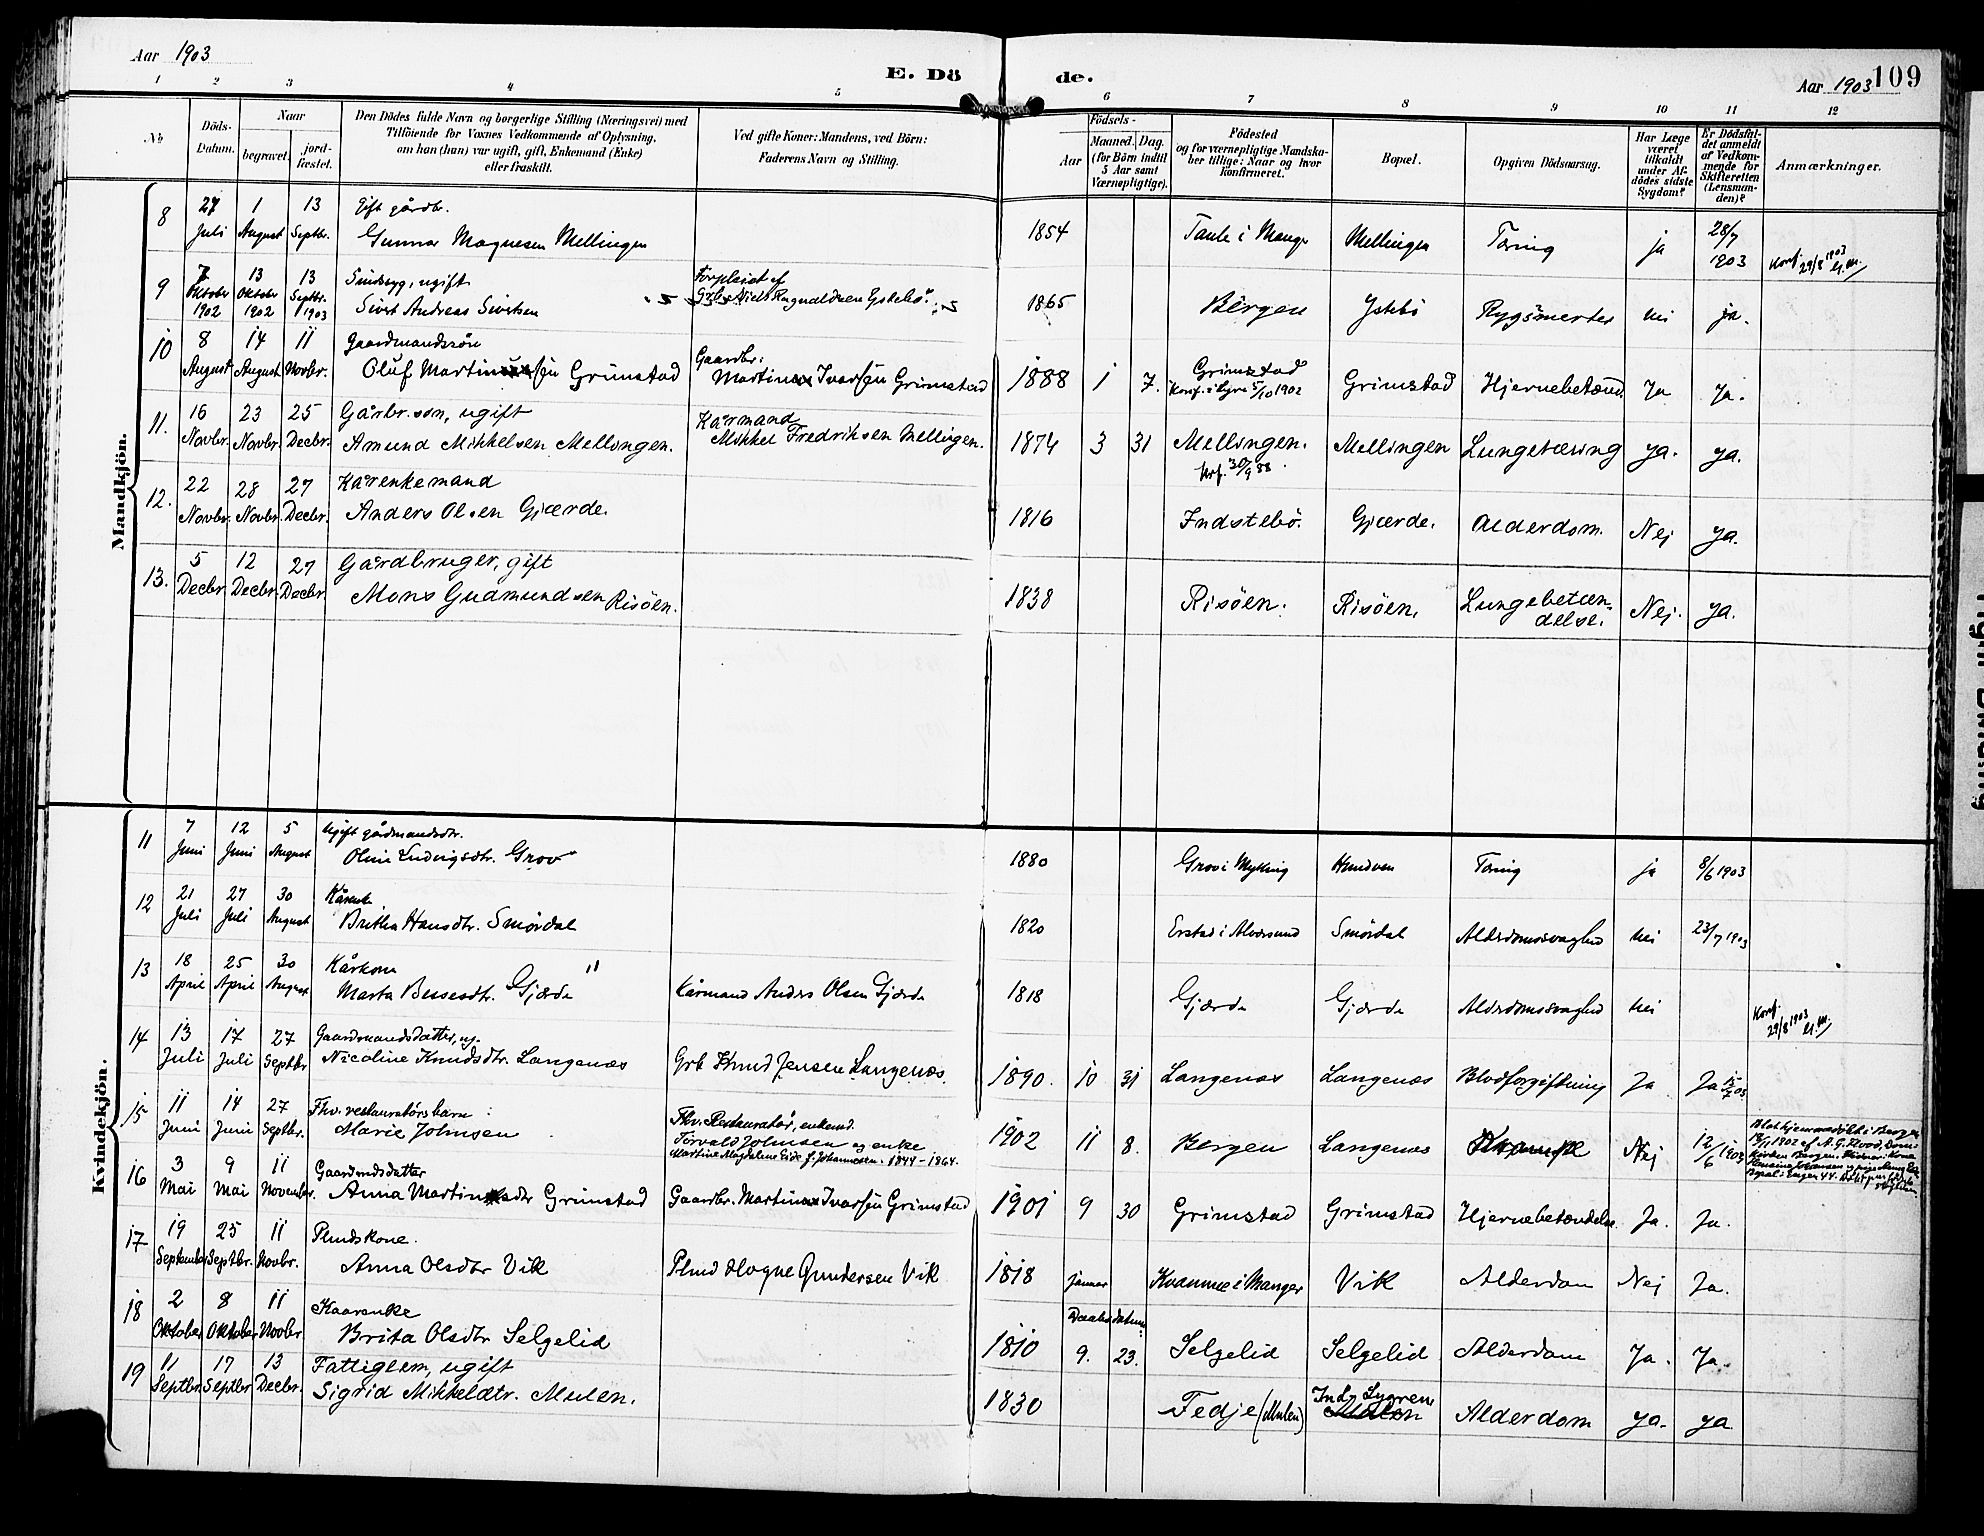 Aar 1903
E. Dö de.
Aar 1903 109
1 2 3 4 5 6 7 8 9 10 11 12
No
Döds-
Datum.
Naar
begravet.
jord-
fæstet.
Den Dödes fulde Navn og borgerlige Stilling (Næringsvei) med
Tilföiende for Voxnes Vedkommende af Oplysning,
om han (hun) var ugift, gift, Enkemand (Enke)
eller fraskilt.
Ved gifte Koner: Mandens, ved Börn:
Faderens Navn og Stilling.
Födsels-
Aar
Maaned. Dag.
(for Börn indtil
5 Aar samt
Værnepligtige).
Födested
og for værnepligtige Mandska-
ber tillige: Naar og hvor
konfirmeret.
Bopæl.
Opgiven Dödsaarsag.
Har Læge
været
tilkaldt
under Af-
dödes sidste
Sygdom?
Er Dödsfal-
det anmeldt
af Vedkom-
mende for
Skifteretten
(Lensman-
den)?
Anmærkninger.
Mandkjön.
8 27 Juli 1 August 13 Septbr. Gift gårdbr.
Gunnar Magnesen Mellingen 1854 Taule i Manger Mellingen Tæring ja 28/7 1903 Konf. 29/8 1903
9 7 Oktober 1902 13 Oktober 1902 13 Septbr. 1903 Sindssyg, ugift
Sivert Andreas Sivertsen Forpleiet af
Grbr. Niels Ragnvaldsen Ystebö 1865 Bergen Ystebö Rygsmerter nei ja.
10 8 August 14 August 11 Novbr. Gaardmandssön
Oluf Martinssen Grimstad Gaardbr.
Martin Ivarsen Grimstad 1888 1 7. Grimstad
Konf. i Lygre 5/10 1902 Grimstad Hjernebetænd. Ja Ja.
11. 16 Novbr. 23 Novbr. 25 Decbr. Gårbr. sön, ugift
Amund Mikkelsen Mellingen. Kårmand
Mikkel Fredriksen Mellingen. 1874 3 31 Mellingen.
Krf. 30/9 88. Mellingen Lungetæring Ya. Ya.
12. 22 Novbr. 28 Novbr. 27 Decbr. Kårenkemand
Anders Olsen Gjærde. 1816 Indstebö. Gjærde. Alderdom. Nej Ya.
13. 5 Decbr. 12 Decbr. 27 Decbr. Gårdbruger, gift
Mons Gudmundsen Risöen. 1838 Risöen. Risöen. Lungebetæn-
delse. Nej. Ya.
Kvindekjön.
11 7 Juni 12 Juni 5 August Ugift gårdmandsdtr.
Oline Ludvigsdtr. Grov 1880 Grov i Myking Hundven Tæring ja 8/6 1903
12 21 Juli 27 Juli 30 August Kårenke
Britha Hansdtr. Smördal 1820 Erstad i Alversund Smördal Alderdomssvaghed nei 23/7 1903
13 18 April 25 April 30 August Kårkone
Marta Bessesdtr. Gjærde Kårmand Anders Olsen Gjærde 1818 Gjærde Gjærde Alderdomssvaghed nei Konf. 29/8 1903
14 13 Juli 17 Juli 27 Septbr Gaardmandsdatter, ug.
Nicoline Knudsdtr Langenæs Grb Knud Jensen Langenæs. 1890. 10 31 Langenæs Langenæs Blodforgiftning Ja Ja
15 11 Juni 14 Juni 27 Septbr. Fhv. restauratörs barn
Marie Johnsen Fhv. Restauratör, enkemd.
Torvald Johnsen og enke
Martine Magdalene Eide f. Johannesen. 1844–1864. 1902 11 8. Bergen Langenæs Nej 12/6 1903 Blev hjemmedöbt i Bergen
16 3 Mai 9 Mai 11 November Gaardmdsdatter
Anna Martinsdtr Grimstad Gaardbr. Martin Ivarsen Grimstad 1901 9 30 Grimstad Grimstad Hjernebetændelse. Ja. Ja.
17 19 September 25 Septbr. 11 Novbr. Plmdskone.
Anna Olsdtr Vik Plmd Hogne Gundersen Vik 1818 januar Kvamme i Manger Vik Alderdom Nej Ja.
18 2 Oktober 8 Oktober 11 Novbr. Kaarenke
Brita Olsdtr Selgelid 1810 Daabsdatum
9. 23. Selgelid Selgelid Alderdom Ja. Ja.
19 11 Septbr. 17 Septbr 13 Decbr. Fattiglem, ugift
Sigrid Mikkeldtr. Mulen. 1830 Fedje (Mulen) Ind. Lygren Alderdom Ya. Ya